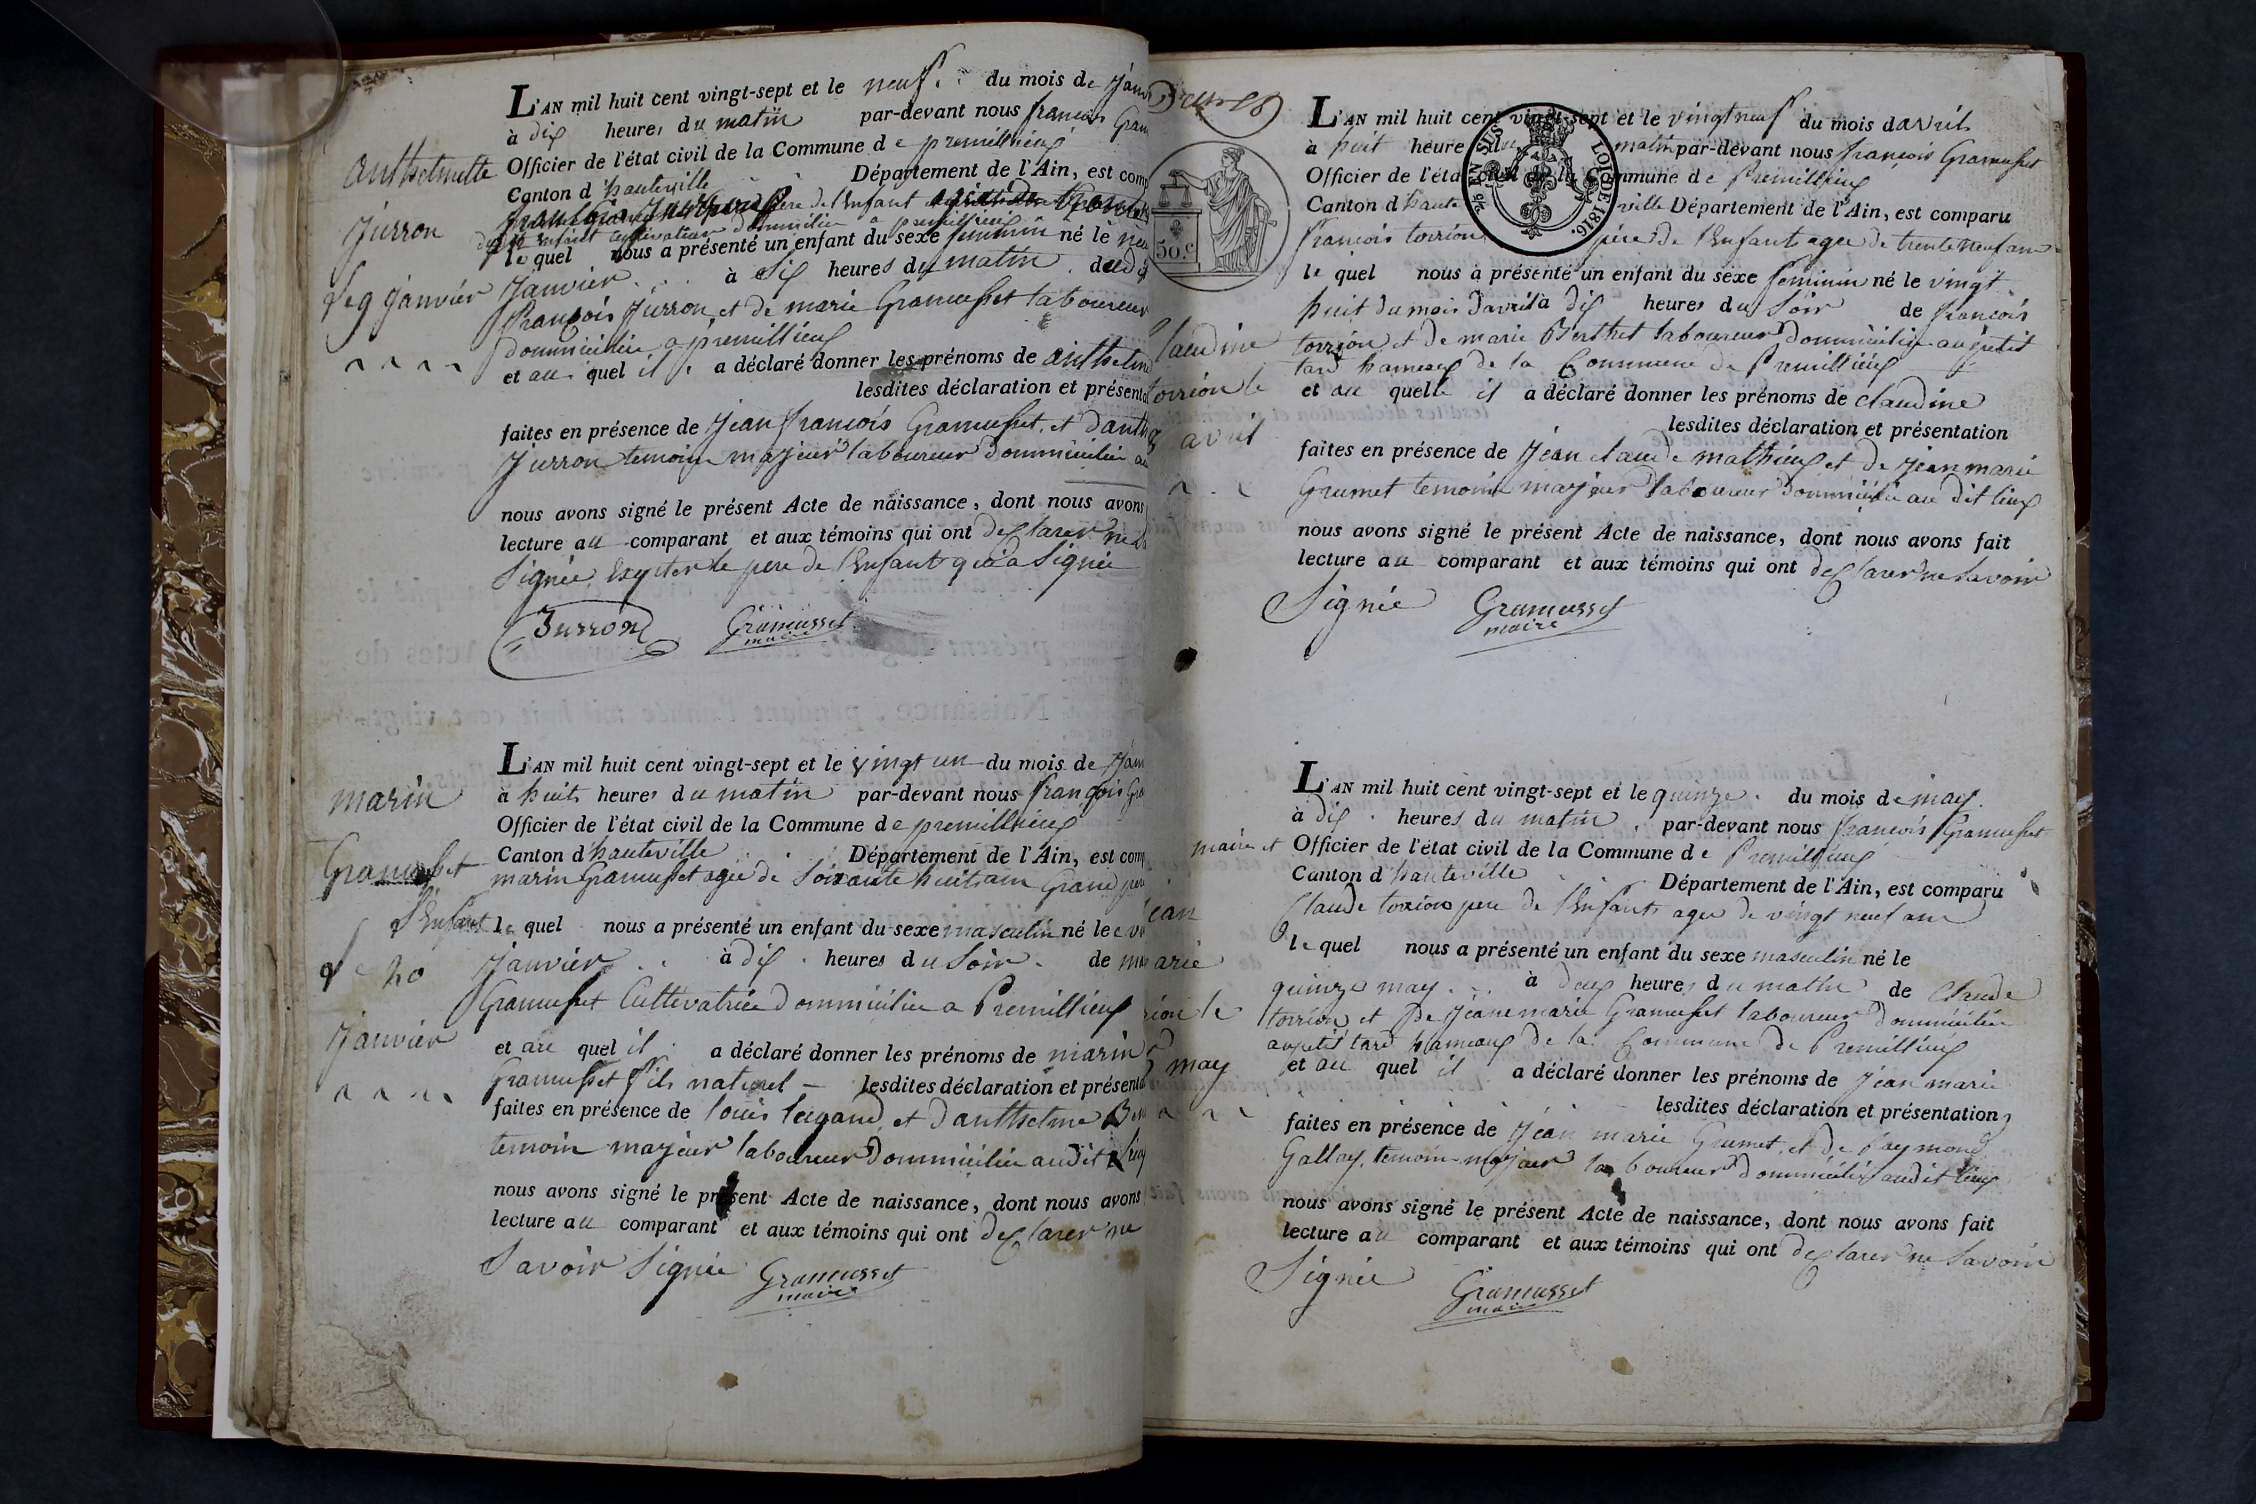 L'AN mil huit cent vingt-sept et le neuf. du mois de Janv
à dix heures du matin par-devant nous francois Gram
Officier de l'état civil de la Commune de premillieux
Canton d'hauteville Département de l'Ain, est comp
père de l'Enfant
cultivateur domicilié à premillieux
le quel nous a présenté un enfant du sexe feminin né le neu
Janvier à six heures du matin
françois Jurron et de marie Gramusset laboureur
dommicilié a premillieux
et au quel il a déclaré donner les prénoms de anthelm
lesdites déclaration et présenta
faites en présence de Jean francois Gramusset, et d'anth
Jurron temoin majeur laboureur dommicilié au
nous avons signé le présent Acte de naissance, dont nous avons
lecture au comparant et aux témoins qui ont declarer ne
SignéeExcpter le pere de l'Enfant qui a Signée
Jurron Gramusset
maire
anthelmette
Jurron
le 9 janvier
L'AN mil huit cent vingt-sept et le vingt un du mois de Jan
à huit heures du matin par-devant nous françois Gra
Officier de l'état civil de la Commune de premillieux
Canton d'hauteville Département de l'Ain, est comp
marin Gramusset agée de Soixante huit an Grand per
le quel nous a présenté un enfant du sexe masculin né le vi
Janvier à dix heures du Soir de ma
Gramusset Cultivatrice dommicilié a Premillieux
et au quel il a déclaré donner les prénoms de marin
Gramusset fils naturel — lesdites déclaration et présenta
faites en présence de louis lugand, et d'anthelme
temoin majeur laboureur dommicilié audit lieux
nous avons signé le présent Acte de naissance, dont nous avons
lecture au comparant et aux témoins qui ont declarer ne
Savoir Signée Gramusset
maire
marin
Gramusset
l'Enfant
le 20
Janvier
50.c
EN SUS LOI DE 1816
L'AN mil huit cent vingt-sept et le vingt neuf du mois d'avril
à huit heures du matin par-devant nous françois Gramusset
Officier de l'état civil de la Commune de Premillieux
Canton d'hauteville Département de l'Ain, est comparu
francois torrion père de l'Enfant agee de trente neuf an
le quel nous a présenté un enfant du sexe feminin né le vingt
huit du mois d'avril à dix heures du Soir de francois
torrion et de marie Berthet laboureur dommicilié au petit
tard hameaux de la Commune de Premillieux
et au quelle il a déclaré donner les prénoms de claudine
lesdites déclaration et présentation
faites en présence de Jean claude mathieux et de Jean marie
Grumet temoin majeur laboureur dommicilié au dit lieux
nous avons signé le présent Acte de naissance, dont nous avons fait
lecture au comparant et aux témoins qui ont declarer ne Savoir
Signée Gramusset
maire
laudine
torrion le
avril
L'AN mil huit cent vingt-sept et le quinze du mois de may
à dix heures du matin par-devant nous francois Gramusset
maire et Officier de l'état civil de la Commune de Premillieux
Canton d'hauteville Département de l'Ain, est comparu
Claude torrion pere de l'Enfant agee de vingt neuf an
le quel nous a présenté un enfant du sexe masculin né le
quinze may à deux heures du matin de Claude
torrion et de Jeane marie Gramusset laboureur dommicilié
au petit tard hameaux de la Commune de Premillieux
et au quel il a déclaré donner les prénoms de Jean marie
lesdites déclaration et présentation
faites en présence de Jean marie Grumet, et de Raymond
Gallay, temoin majeur laboureur dommicilié audit lieux
nous avons signé le présent Acte de naissance, dont nous avons fait
lecture au comparant et aux témoins qui ont declarer ne Savoir
Signée Gramusset
maire
ean
arie
rion le
may